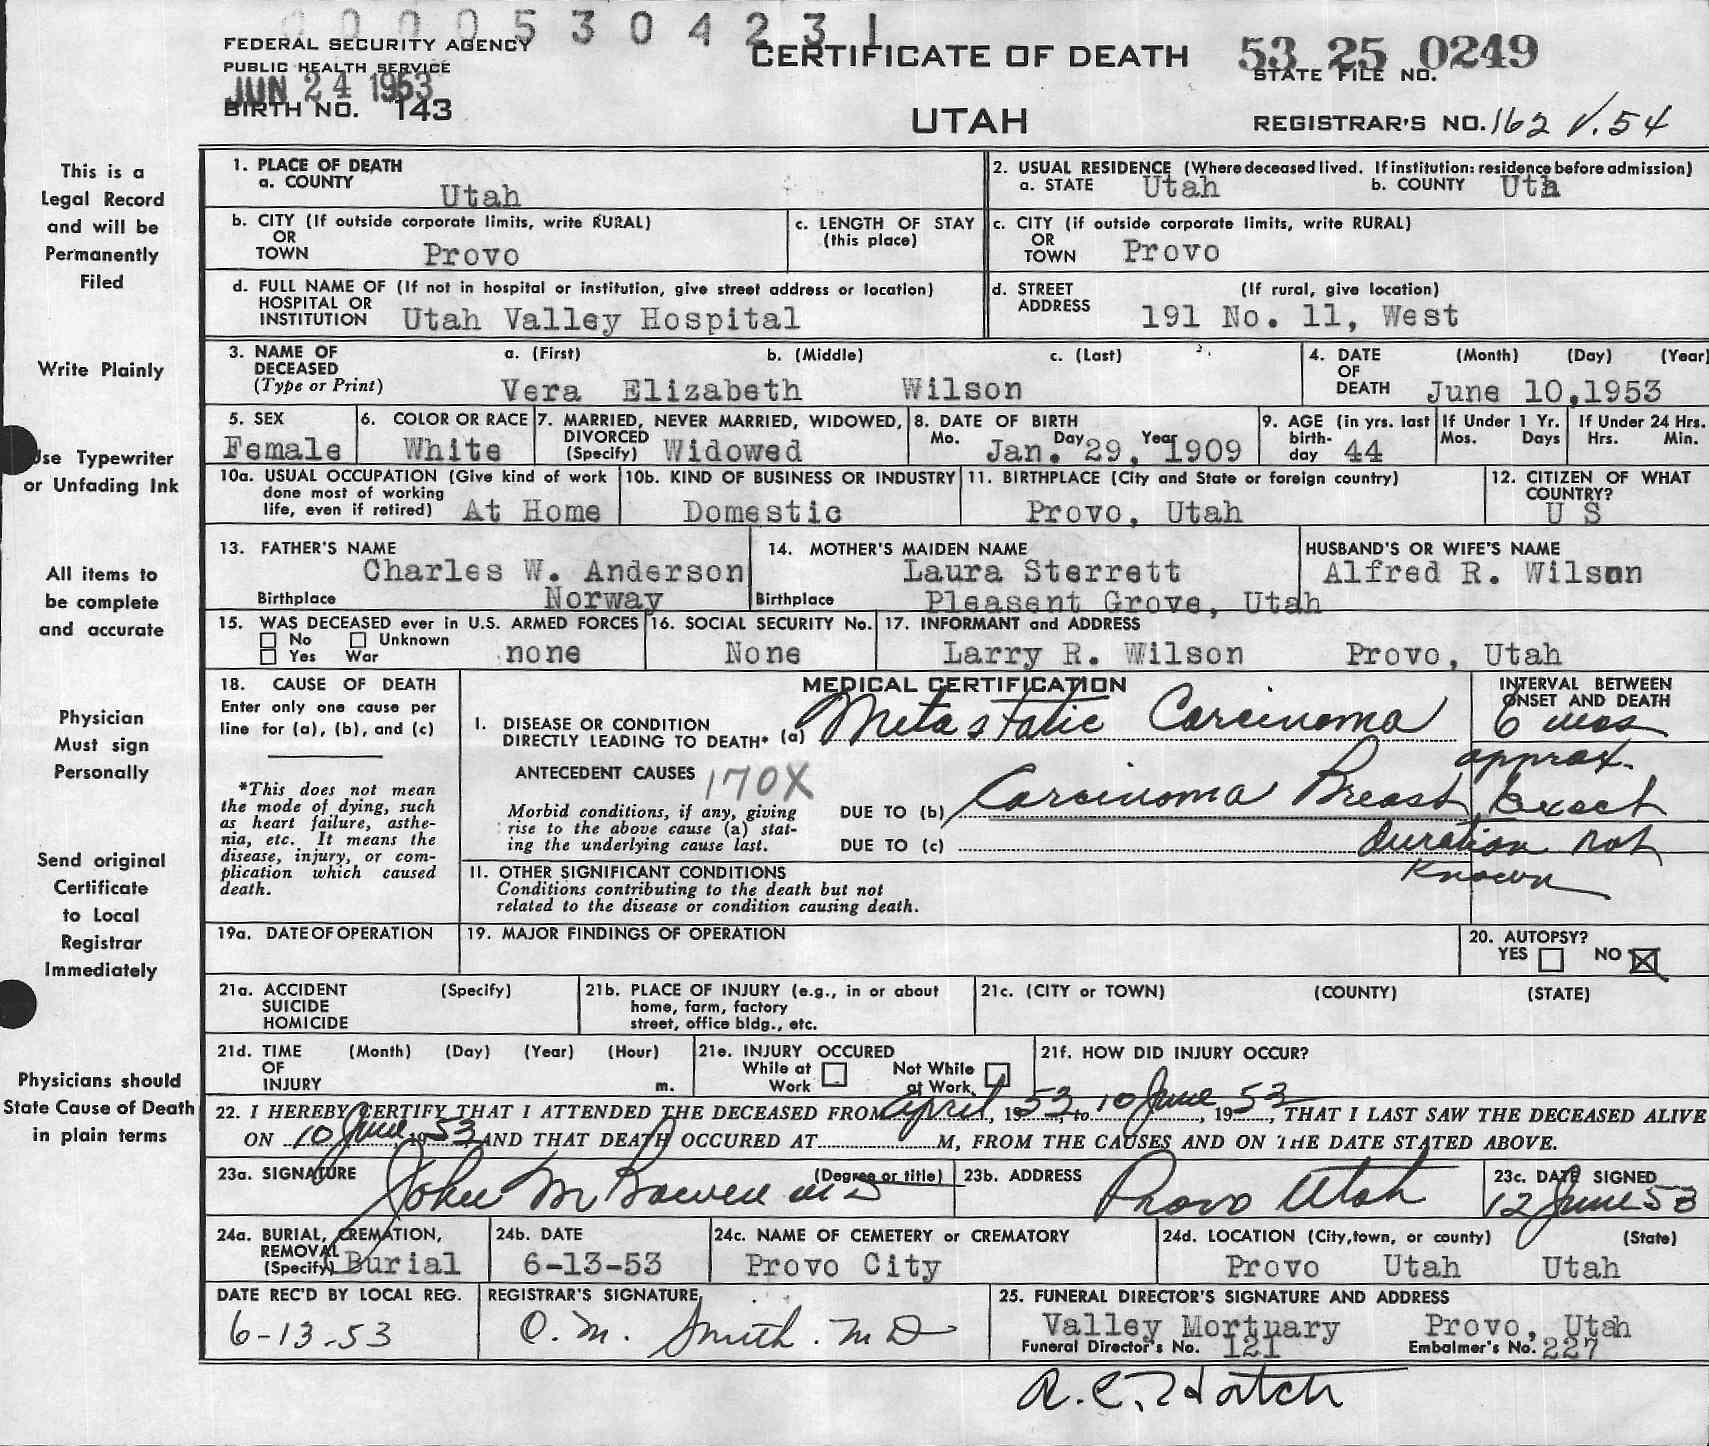 0000530423 1
FEDERAL SECURITY AGENCY
PUBLIC HEALTH SERVICE
JUN 24 1953
BIRTH NO. 143
CERTIFICATE OF DEATH
UTAH
53 25 0249
STATE FILE NO.
REGISTRAR'S NO. 162 V.54
This is a
Legal Record
and will be
Permanently
Filed
Write Plainly
Use Typewriter
or Unfading Ink
All items to
be complete
and accurate
Physician
Must sign
Personally
Send original
Certificate
to Local
Registrar
Immediately
Physicians should
State Cause of Death
in plain terms
1. PLACE OF DEATH
a. COUNTY Utah
2. USUAL RESIDENCE (Where deceased lived. If institution: residence before admission)
a. STATE Utah b. COUNTY Uta
b. CITY (If outside corporate limits, write RURAL)
OR
TOWN Provo
c. LENGTH OF STAY
(this place)
c. CITY (if outside corporate limits, write RURAL)
OR
TOWN Provo
d. FULL NAME OF (If not in hospital or institution, give street address or location)
HOSPITAL OR
INSTITUTION Utah Valley Hospital
d. STREET (If rural, give location)
ADDRESS 191 No. 11, West
3. NAME OF a. (First) b. (Middle) c. (Last)
DECEASED
(Type or Print) Vera Elizabeth Wilson
4. DATE (Month) (Day) (Year)
OF
DEATH June 10, 1953
5. SEX
Female
6. COLOR OR RACE
White
7. MARRIED, NEVER MARRIED, WIDOWED,
DIVORCED
(Specify) Widowed
8. DATE OF BIRTH
Mo. Day Year
Jan. 29, 1909
9. AGE (in yrs. last
birth-
day 44
If Under 1 Yr.
Mos. Days
If Under 24 Hrs.
Hrs. Min.
10a. USUAL OCCUPATION (Give kind of work
done most of working
life, even if retired) At Home
10b. KIND OF BUSINESS OR INDUSTRY
Domestic
11. BIRTHPLACE (City and State or foreign country)
Provo, Utah
12. CITIZEN OF WHAT
COUNTRY?
U S
13. FATHER'S NAME
Charles W. Anderson
Birthplace Norway
14. MOTHER'S MAIDEN NAME
Laura Sterrett
Birthplace Pleasent Grove, Utah
HUSBAND'S OR WIFE'S NAME
Alfred R. Wilson
15. WAS DECEASED ever in U.S. ARMED FORCES
No Unknown
Yes War none
16. SOCIAL SECURITY No.
None
17. INFORMANT and ADDRESS
Larry R. Wilson Provo, Utah
18. CAUSE OF DEATH
Enter only one cause per
line for (a), (b), and (c)
*This does not mean
the mode of dying, such
as heart failure, asthe-
nia, etc. It means the
disease, injury, or com-
plication which caused
death.
MEDICAL CERTIFICATION
I. DISEASE OR CONDITION
DIRECTLY LEADING TO DEATH* (a) Metastatic Carcinoma
ANTECEDENT CAUSES 170X
Morbid conditions, if any, giving
rise to the above cause (a) stat-
ing the underlying cause last.
DUE TO (b) Carcinoma Breast
DUE TO (c)
INTERVAL BETWEEN
ONSET AND DEATH
6 mos
approx.
Exact
duration not
known
II. OTHER SIGNIFICANT CONDITIONS
Conditions contributing to the death but not
related to the disease or condition causing death.
19a. DATE OF OPERATION
19. MAJOR FINDINGS OF OPERATION
20. AUTOPSY?
YES NO
21a. ACCIDENT (Specify)
SUICIDE
HOMICIDE
21b. PLACE OF INJURY (e.g., in or about
home, farm, factory
street, office bldg., etc.
21c. (CITY or TOWN) (COUNTY) (STATE)
21d. TIME (Month) (Day) (Year) (Hour)
OF
INJURY m.
21e. INJURY OCCURED
While at Not While
Work at Work
21f. HOW DID INJURY OCCUR?
22. I HEREBY CERTIFY THAT I ATTENDED THE DECEASED FROM April, 1953, to 10 June, 1953, THAT I LAST SAW THE DECEASED ALIVE
ON 10 June 1953 AND THAT DEATH OCCURED AT M, FROM THE CAUSES AND ON THE DATE STATED ABOVE.
23a. SIGNATURE (Degree or title)
John M Bowen MD
23b. ADDRESS
Provo Utah
23c. DATE SIGNED
12 June 53
24a. BURIAL, CREMATION,
REMOVAL
(Specify) Burial
24b. DATE
6-13-53
24c. NAME OF CEMETERY or CREMATORY
Provo City
24d. LOCATION (City, town, or county) (State)
Provo Utah Utah
DATE REC'D BY LOCAL REG.
6-13-53
REGISTRAR'S SIGNATURE
O. M. Smith. MD
25. FUNERAL DIRECTOR'S SIGNATURE AND ADDRESS
Valley Mortuary Provo, Utah
Funeral Director's No. 121 Embalmer's No. 227
A. C. Hatch